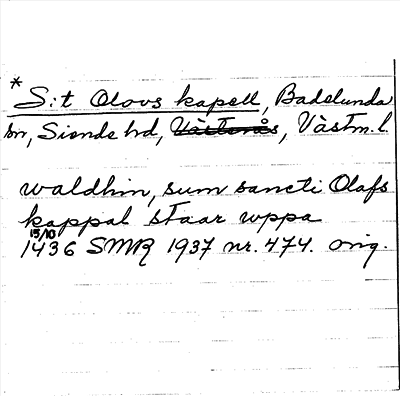 * S:t Olovs kapell, Badelunda
sn, Siende hd, Västerås, Västm. l.
waldhin, sum sancti Olafs
kappal staar uppa
15/10
1436 SMR 1937 nr. 474. orig.